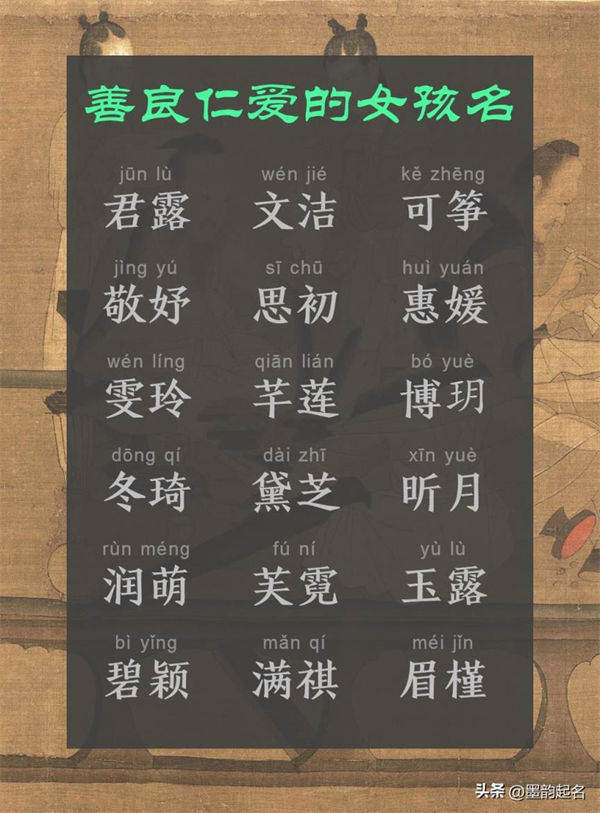 善良仁爱的女孩名
jūn lù wén jié kě zhēng
君露 文洁 可筝
jìng yú sī chū huì yuán
敬妤 思初 惠媛
wén líng qiān lián bó yuè
雯玲 芊莲 博玥
dōng qí dài zhī xīn yuè
冬琦 黛芝 昕月
rùn méng fú ní yù lù
润萌 芙霓 玉露
bì yǐng mǎn qí méi jǐn
碧颖 满祺 眉槿
头条 @墨韵起名